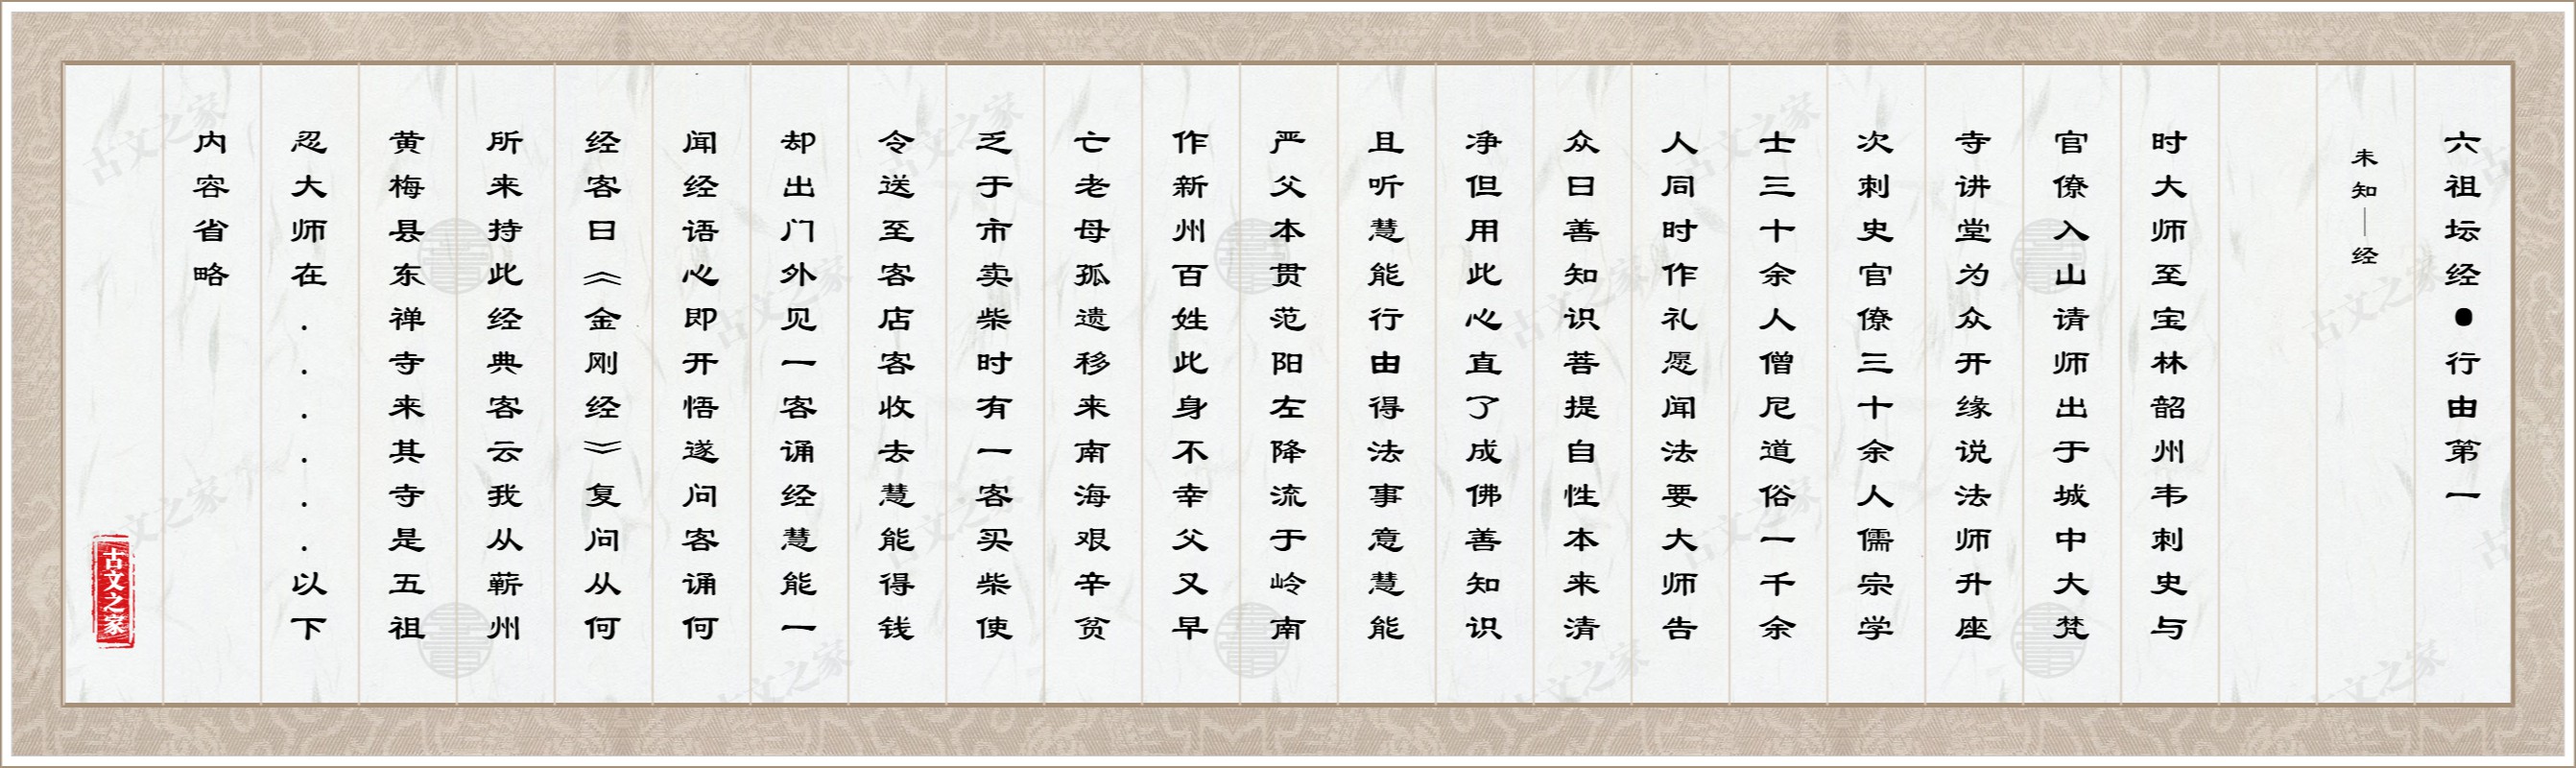 六祖坛经●行由第一
未知—经
时大师至宝林韶州韦刺史与
官僚入山请师出于城中大梵
寺讲堂为众开缘说法师升座
次刺史官僚三十余人儒宗学
士三十余人僧尼道俗一千余
人同时作礼愿闻法要大师告
众曰善知识菩提自性本来清
净但用此心直了成佛善知识
且听慧能行由得法事意慧能
严父本贯范阳左降流于岭南
作新州百姓此身不幸父又早
亡老母孤遗移来南海艰辛贫
乏于市卖柴时有一客买柴使
令送至客店客收去慧能得钱
却出门外见一客诵经慧能一
闻经语心即开悟遂问客诵何
经客曰《金刚经》复问从何
所来持此经典客云我从蕲州
黄梅县东禅寺来其寺是五祖
忍大师在......以下
内容省略
古文之家